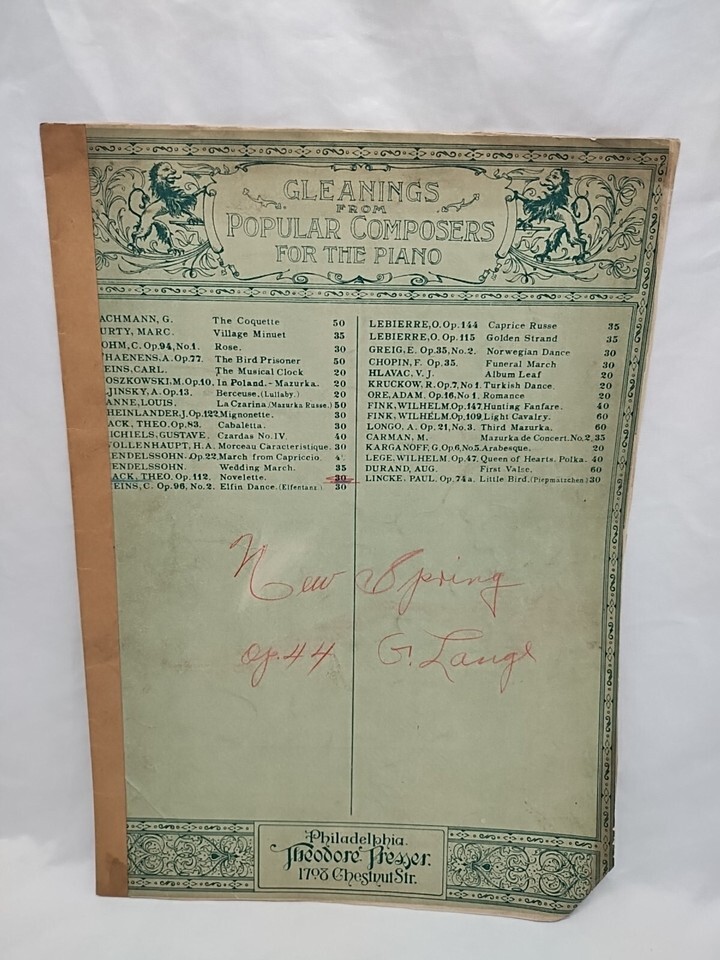 GLEANINGS
FROM
POPULAR COMPOSERS
FOR THE PIANO
ACHMANN, G. The Coquette 50
URTY, MARC. Village Minuet 35
OHM, C. Op. 94, No. 1. Rose. 30
'HAENENS, A. Op. 77. The Bird Prisoner 50
EINS, CARL. The Musical Clock 20
OSZKOWSKI, M. Op. 10, In Poland.-Mazurka. 20
LJINSKY, A. Op. 13. Berceuse, (Lullaby.) 20
ANNE, LOUIS. La Czarina, (Mazurka Russe.) 50
HEINLANDER, J. Op. 122, Mignonette. 30
ACK, THEO. Op. 83. Cabaletta. 30
ICHIELS, GUSTAVE. Czardas No. IV. 40
OLLENHAUPT, H. A. Morceau Caracteristique. 30
ENDELSSOHN. Op. 22, March from Capriccio.
ENDELSSOHN. Wedding March. 35
ACK, THEO. Op. 112, Novelette. 30
EINS, C. Op. 96, No. 2. Elfin Dance. (Elfentanz.) 30
LEBIERRE, O. Op. 144 Caprice Russe 35
LEBIERRE, O. Op. 115 Golden Strand 35
GREIG, E. Op. 35, No. 2. Norwegian Dance 30
CHOPIN, F. Op. 35. Funeral March 30
HLAVAC, V. J. Album Leaf 20
KRUCKOW, R. Op. 7, No 1. Turkish Dance. 20
ORE, ADAM. Op. 16, No 1. Romance 20
FINK, WILHELM. Op. 147, Hunting Fanfare. 40
FINK, WILHELM. Op. 109, Light Cavalry. 60
LONGO, A. Op. 21, No. 3. Third Mazurka. 60
CARMAN, M. Mazurka de Concert. No. 2, 35
KARGANOFF, G. Op. 6, No. 5. Arabesque. 20
LEGE, WILHELM. Op. 47. Queen of Hearts. Polka. 40
DURAND, AUG. First Valse. 60
LINCKE, PAUL. Op. 74 a. Little Bird. (Piepmätzchen) 30
New Spring
Op. 44 G. Lange
Philadelphia.
Theodore Presser.
1708 Chestnut Str.